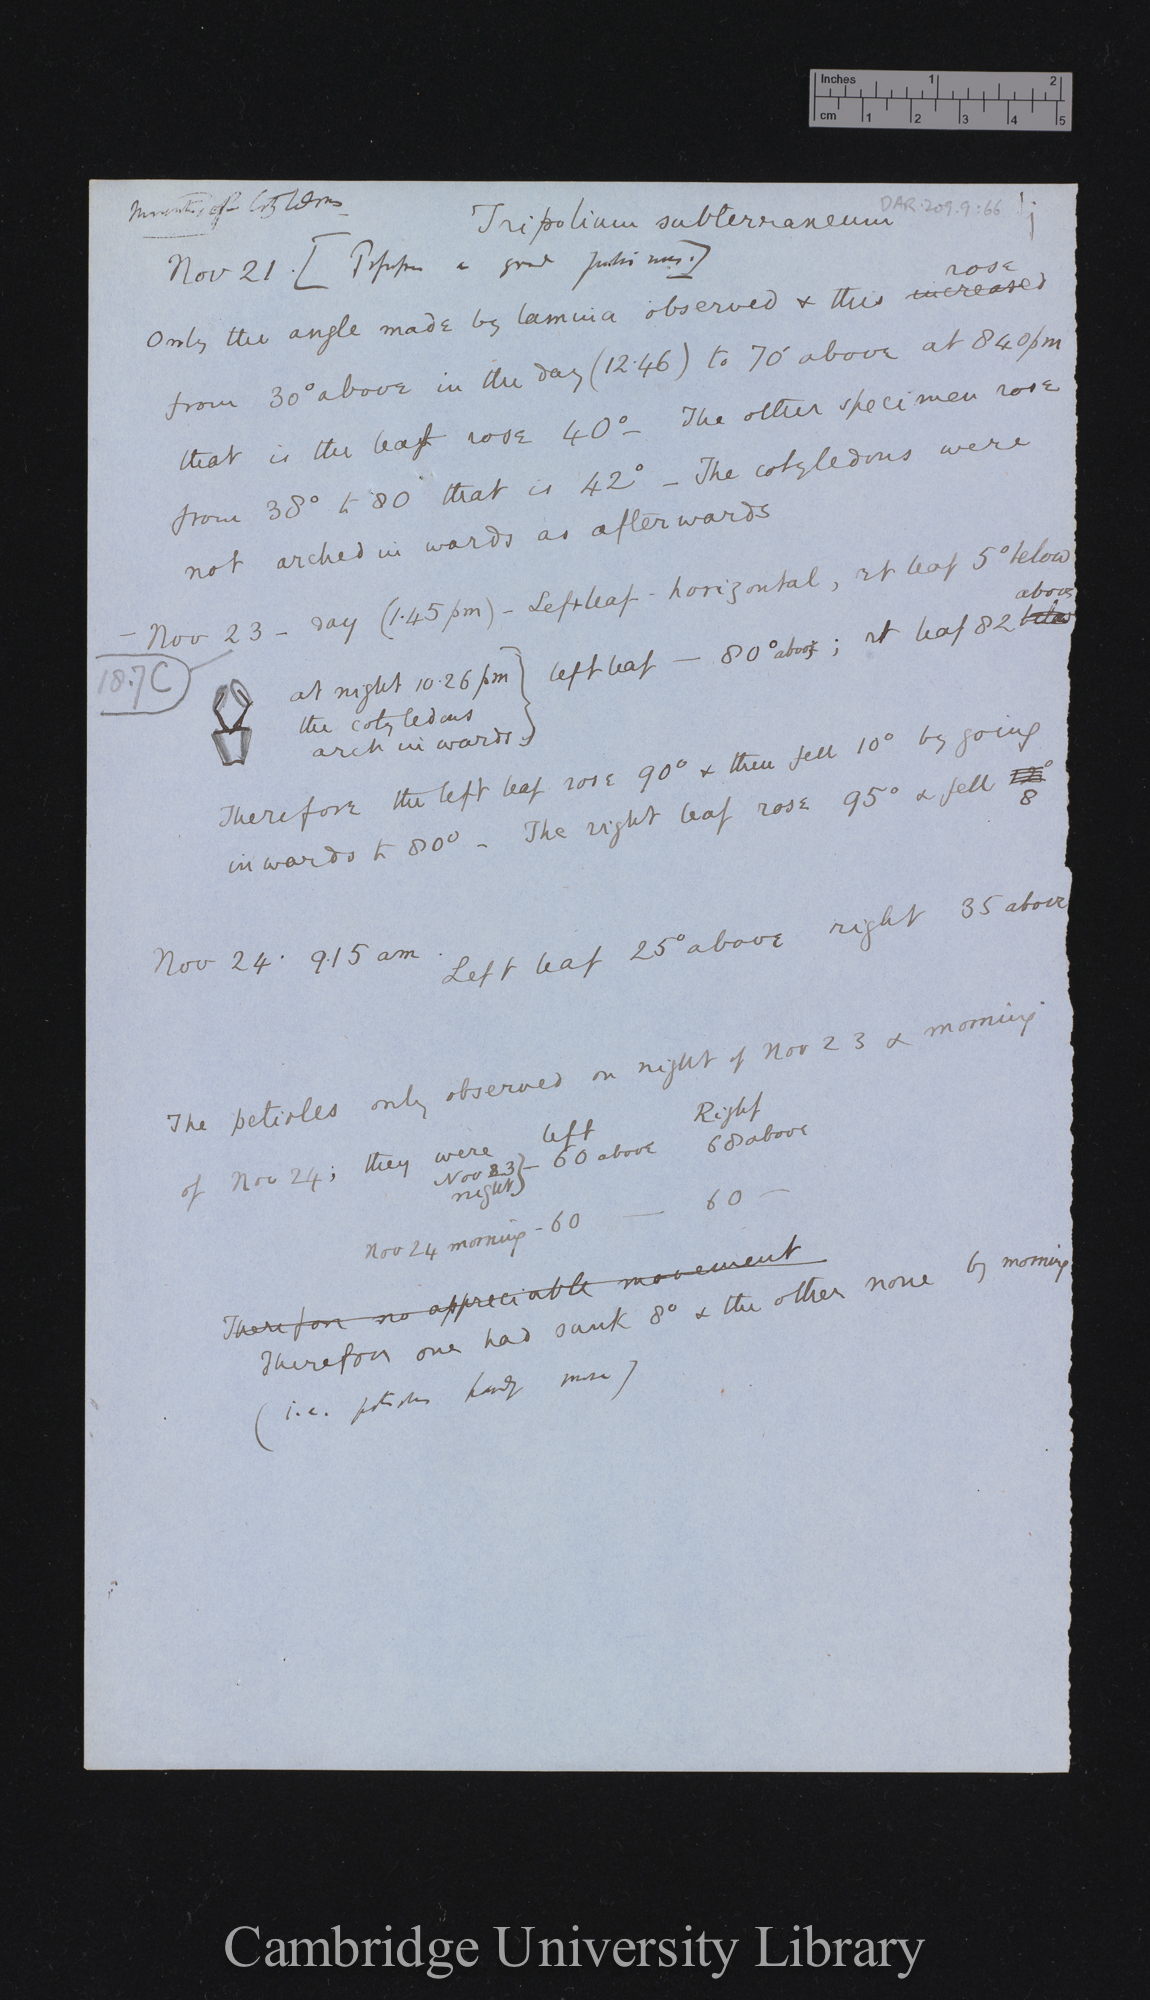 Inches 1 2
cm 1 2 3 4 5
DAR.209.9:66
Movements of Cotyledons
Tripolium subterraneum
Nov 21. [ a good
Only the angle made by lamina observed & this increased rose
from 30° above in the day (12.46) to 70 above at 8 40 pm
that is the leaf rose 40° – The other specimen rose
from 38° to 80 that is 42° – The cotyledons were
not arched inwards as afterwards
– Nov 23 – day (1.45 pm) – Left leaf – horizontal, rt leaf 5° below
18.7C
at night 10.26 pm } left leaf – 80° above; rt leaf 82 below above
the cotyledons
arch inwards
Therefore the left leaf rose 90° & then fell 10° by going
inwards to 80° – The right leaf rose 95° & fell 8°
Nov 24. 9.15 am. Left leaf 25° above right 35 above
The petioles only observed on night of Nov 23 & morning
of Nov 24; they were left Right
Nov 23 night } – 60 above 68 above
Nov 24 morning – 60 — 60 –
Therefore no appreciable movement
Therefore one had sunk 8° & the other none by morning
(i.e. petioles hardly move)
Cambridge University Library